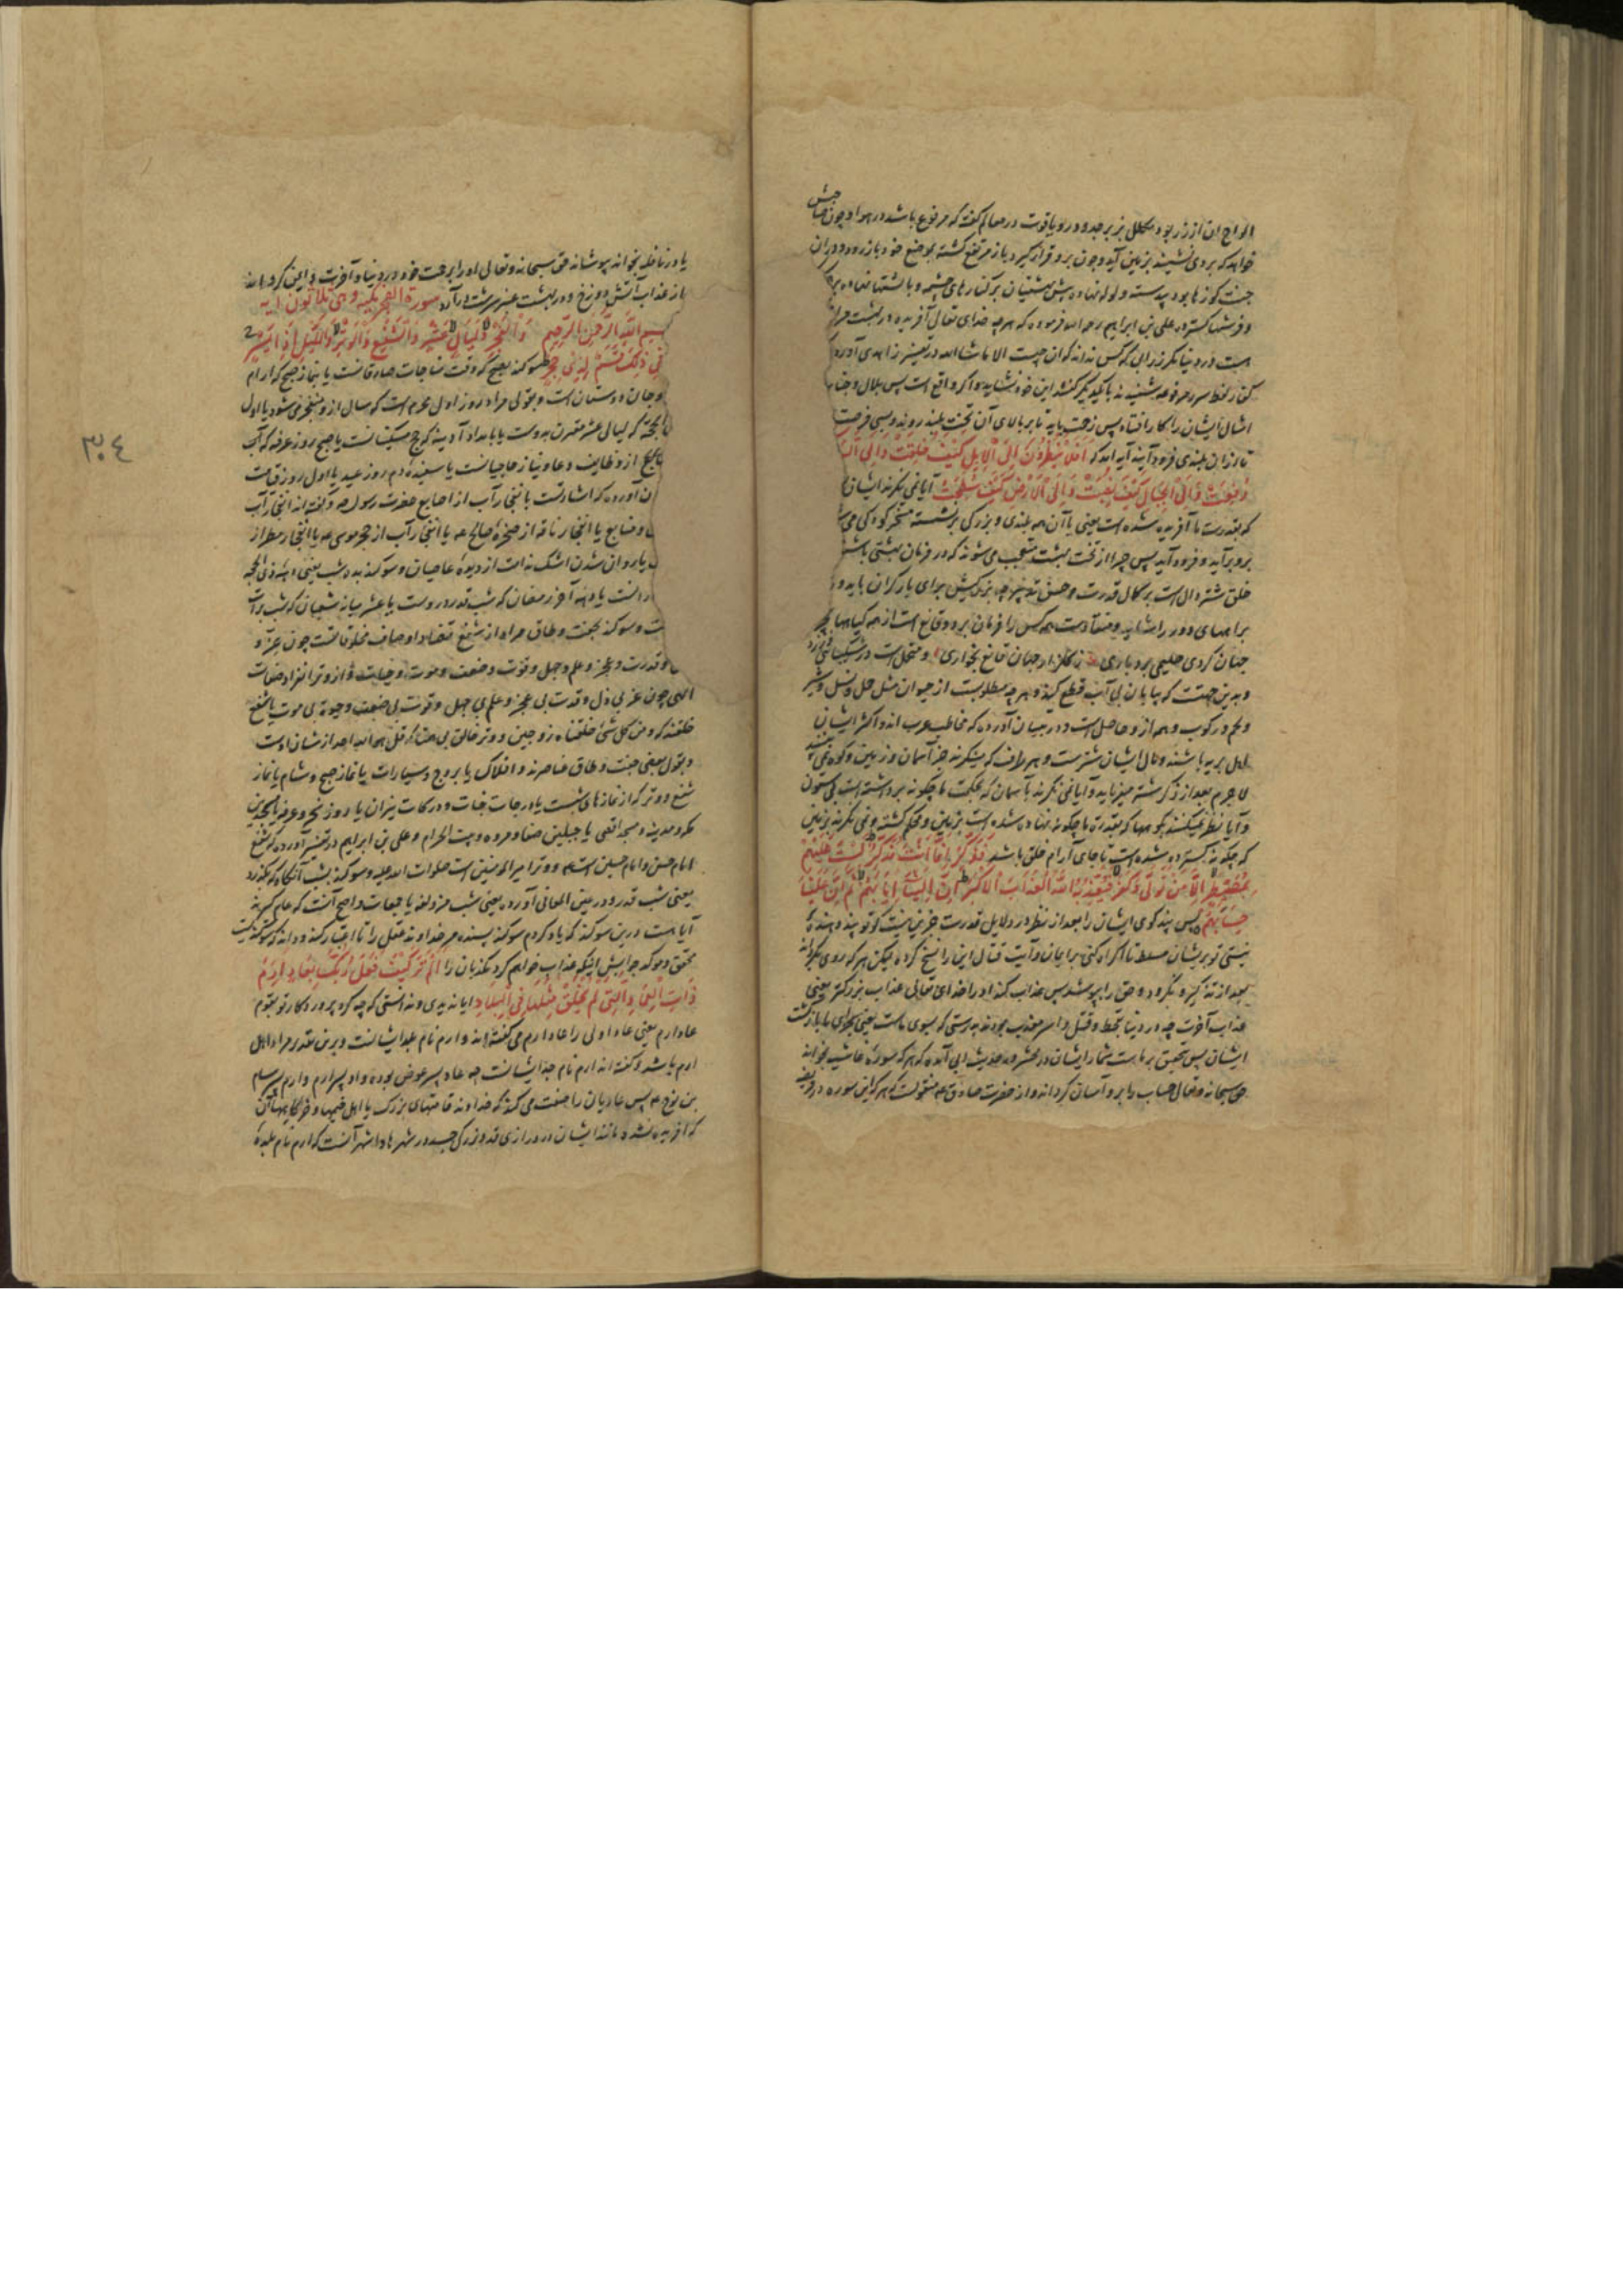 الواح ان از زر بود مکلل بزبرجد و در و یاقوت در معالم گفته که مرفوع باشد در هوا و چون صاحبش
خواهد که بر وی نشیند بزمین آید و چون برو قرار گیرد باز مرتفع گشته بموضع خود باز رود و دران
جنت کوزها بود پیوسته و لولو نهاده پیش بهشتیان بر کنارهای چشمه و بالشتها نهاده
و فرشها گسترده علی بن ابراهیم رحمه الله فرموده که هرچه خدای تعالی آفریده در بهشت
هست در دنیا مگر زرابی که کس نداند که آن چیست الا ماشاء الله در تفسیر زاهدی آورده
کفار لفظ سرر مرفوعه شنیدند با یکدیگر گفتند این خود نشاید و اگر واقع است پس بلال و
امثال ایشان را کار افتاد پس زحمت باید تا بر بالای آن تخت بلند روند و بسی فرصت
تا از ان بلندی فرود آیند آیه امد که أفلا ینظرون الی الابل کیف خلقت و الی
رفعت و الی الجبال کیف نصبت و الی الارض کیف سطحت آیا نمی نگرند ایشان
که بقدرت ما آفریده شده است یعنی با آن همه بلندی و بزرگی برشسته مسخر کودکی
برو برآید و فرود آید پس چرا از تخت بهشت متعجب می شوند که در فرمان بهشتی باشد
خلق شتر دال است بر کمال قدرت و حسن تدبیر چه بزرگیش برای بار گران باید
براههای دور را شاید و منقادست همه کس را فرمان برد و قانع است از همه گیاهها
چنان کردی حلیمی بردباری ز گلزار جهان قانع بخاری و متحمل است در تشنگی
و بدین جهت که بیابان بی آب قطع کند و هرچه مطلوبست از حیوان مثل حمل و نسل و شیر
و لحم و رکوب و هم از و حاصل است و در بیان آورده که مخاطب عرب اند و اکثر ایشان
اهل بریه باشند و مال ایشان شترست و بهر طرف که مینگرند جز آسمان و زمین و کوه نمی بینند
لا جرم بعد از ذکر شتر میفرماید و آیا نمی نگرند بآسمان که بحکمت ما چگونه برداشته است بی ستون
و آیا نظر نمیکنند بکوهها که بقدرت ما چگونه نهاده شده است بر زمین و محکم گشته و نمی نگرند بزمین
که چگونه گسترده شده است تا جای آرام خلق باشد فذکر انما أنت مذکر لست علیهم
بمصیطر الا من تولی و کفر فیعذبه الله العذاب الاکبر ان الینا ایابهم ثم ان علینا
حسابهم پس پند گوی ایشان را بعد از نظر در دلایل قدرت جزین نیست که تو پند دهنده
نیستی تو بر ایشان مسلط تا اکراه کنی بر ایمان و آیت قتال اینرا نسخ کرده لیکن هر که روی بگرداند
بعد از تذکیر و نگرود و حق را بپوشد پس عذاب کند او را خدای تعالی عذاب بزرگتر یعنی
عذاب آخرت چه در دنیا بقحط و قتل و اسر معذب بودند بدرستی که بسوی ماست یعنی بجزای ما بازگشت
ایشان پس تحقیق بر ماست شمار ایشان در محشر و در حدیث ابی آمده که هر که سوره غاشیه بخواند
حق سبحانه و تعالی حساب را برو آسان گرداند و از حضرت صادق عه منقولست که هر که این سوره در فریضه
یا در نافله بخواند بپوشاند حق سبحانه و تعالی او را برحمت خود در دنیا و آخرت و ایمن گرداند
از عذاب آتش دوزخ و در بهشت عنبر سرشت درآرد سورة الفجر مکیه و هی ثلاثون آیه
بسم الله الرحمن الرحیم و الفجر و لیال عشر و الشفع و الوتر و اللیل اذا یسر
فی ذلک قسم لذی حجر سوگند بصبح که وقت مناجات صادقانست یا بنماز صبح که آرام
و جان دوستان است و بقولی مراد روز اول محرم است که سال از و منفجر می شود یا اول
الحجة که لیالی عشر مقرون بدوست یا بامداد آدینه که حج مسکینانست یا صبح روز عرفه که
از وظایف دعا و نیاز حاجیانست یا سپیده دم روز عید یا اول روز قیامت
آورده که اشارتست بانفجار آب از اصابع حضرت رسول صه و گفته اند انفجار آب
و منابع یا انفجار ناقه از صخره صالح عه یا انفجار آب از حجر موسی عه یا انفجار مطر از
یا روان شدن اشک ندامت از دیده عاصیان و سوگند بده شب یعنی دهه ذی الحجه
یا دهه آخر رمضان که شب قدر دروست یا عشر میانه شعبان که شب برات
و سوگند بجفت و طاق مراد از شفع تضاد اوصاف مخلوقاتست چون عز و
و قدرت و عجز و علم و جهل و قوت و ضعف و موت و حیات و از وتر انفراد صفات
الهی چون عز بی ذل و قدرت بی عجز و علم بی جهل و قوت بی ضعف و حیوة بی موت یا شفع
خلقند که و من کل شیء خلقنا زوجین و وتر خالق بی همتا که قل هو الله احد از شان اوست
و بقول بعضی جفت و طاق عناصرند و افلاک یا بروج و سیارات یا نماز صبح و شام یا نماز
شفع و وتر که از نمازهای شبست یا درجات جنات و درکات نیران یا روز نحر و عرفه یا مسجدین
مکه و مدینه و مسجد اقصی یا جبلین صفا و مروه و بیت الحرام و علی بن ابراهیم در تفسیر آورده که شفع
امام حسن و امام حسین است عه و وتر امیر المومنین است صلوات الله علیه و سوگند بشب آنگاه که بگذرد
یعنی شب قدر و در عین المعانی آورده یعنی شب مزدلفه یا جمعات و اصح آنست که عام گیرند
آیا هست درین سوگند که یاد کردم سوگند پسنده مر خداوند عقل را تا اعتبار کند و داند که سوگندیست
محقق و موکد جوابش اینکه عذاب خواهم کرد مکذبان را ألم تر کیف فعل ربک بعاد ارم
ذات العماد التی لم یخلق مثلها فی البلاد ایا ندیدی و ندانستی که چه کرد پروردگار تو بقوم
عاد ارم یعنی عاد اولی را عاد ارم می گفته اند و ارم نام جد ایشانست و برین تقدیر مراد اهل
ارم باشد و گفته اند ارم نام جد ایشانست چه عاد پسر عوض بوده و او پسر ارم و ارم پسر سام
بن نوح عه پس عادیان را صفت می کند که خداوند قامتهای بزرگ یا اهل خیمها و خرگاهها آن
که آفریده نشده مانند ایشان در درازی قد و بزرگی جسد در شهرها و اشهر آنست که ارم نام بلده
٣٠٤